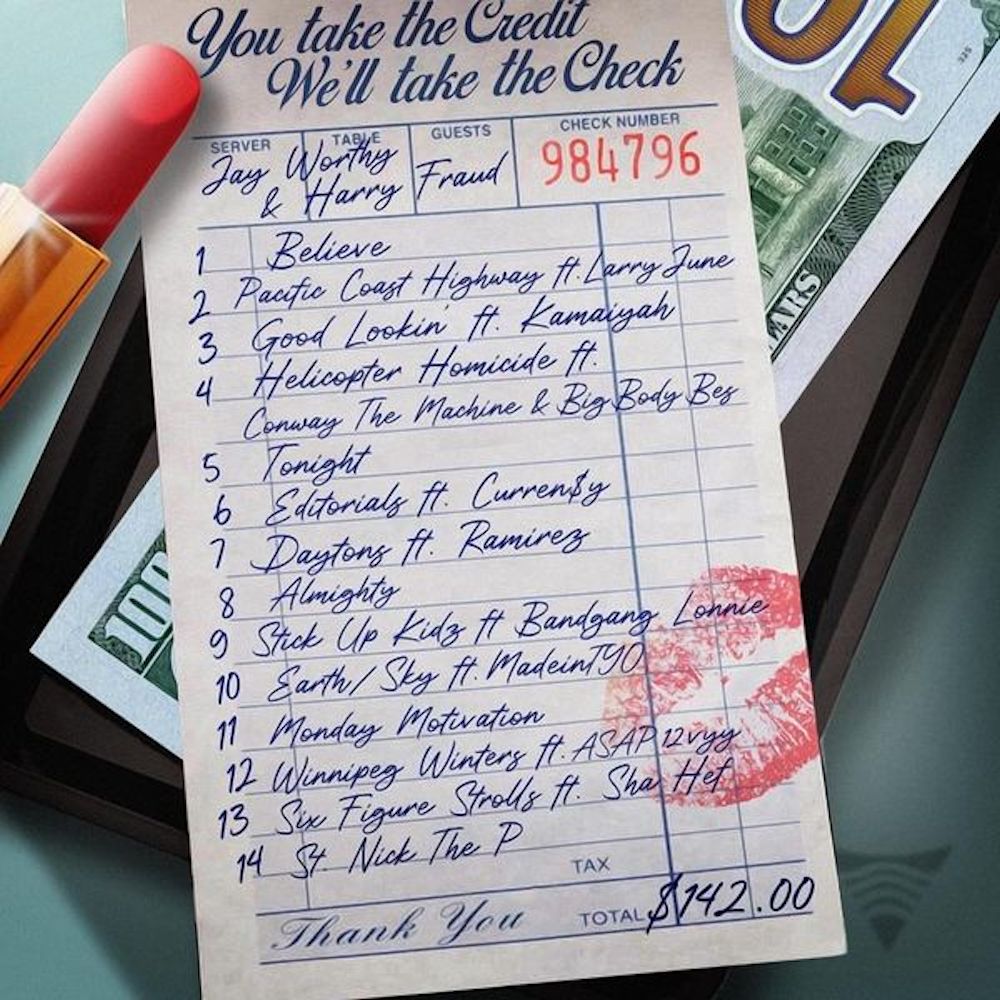 You take the Credit
We'll take the Check
SERVER TABLE GUESTS CHECK NUMBER
Jay Worthy
& Harry Fraud 984796
1 Believe
2 Pacific Coast Highway ft. Larry June
3 Good Lookin' ft. Kamaiyah
4 Helicopter Homicide ft.
Conway The Machine & Big Body Bes
5 Tonight
6 Editorials ft. Curren$y
7 Daytons ft. Ramirez
8 Almighty
9 Stick Up Kidz ft Bandgang Lonnie
10 Earth/Sky ft. MadeinTYO
11 Monday Motivation
12 Winnipeg Winters ft. ASAP 12vyy
13 Six Figure Strolls ft. Sha Hef
14 St. Nick The P
TAX
Thank You TOTAL $142.00
100